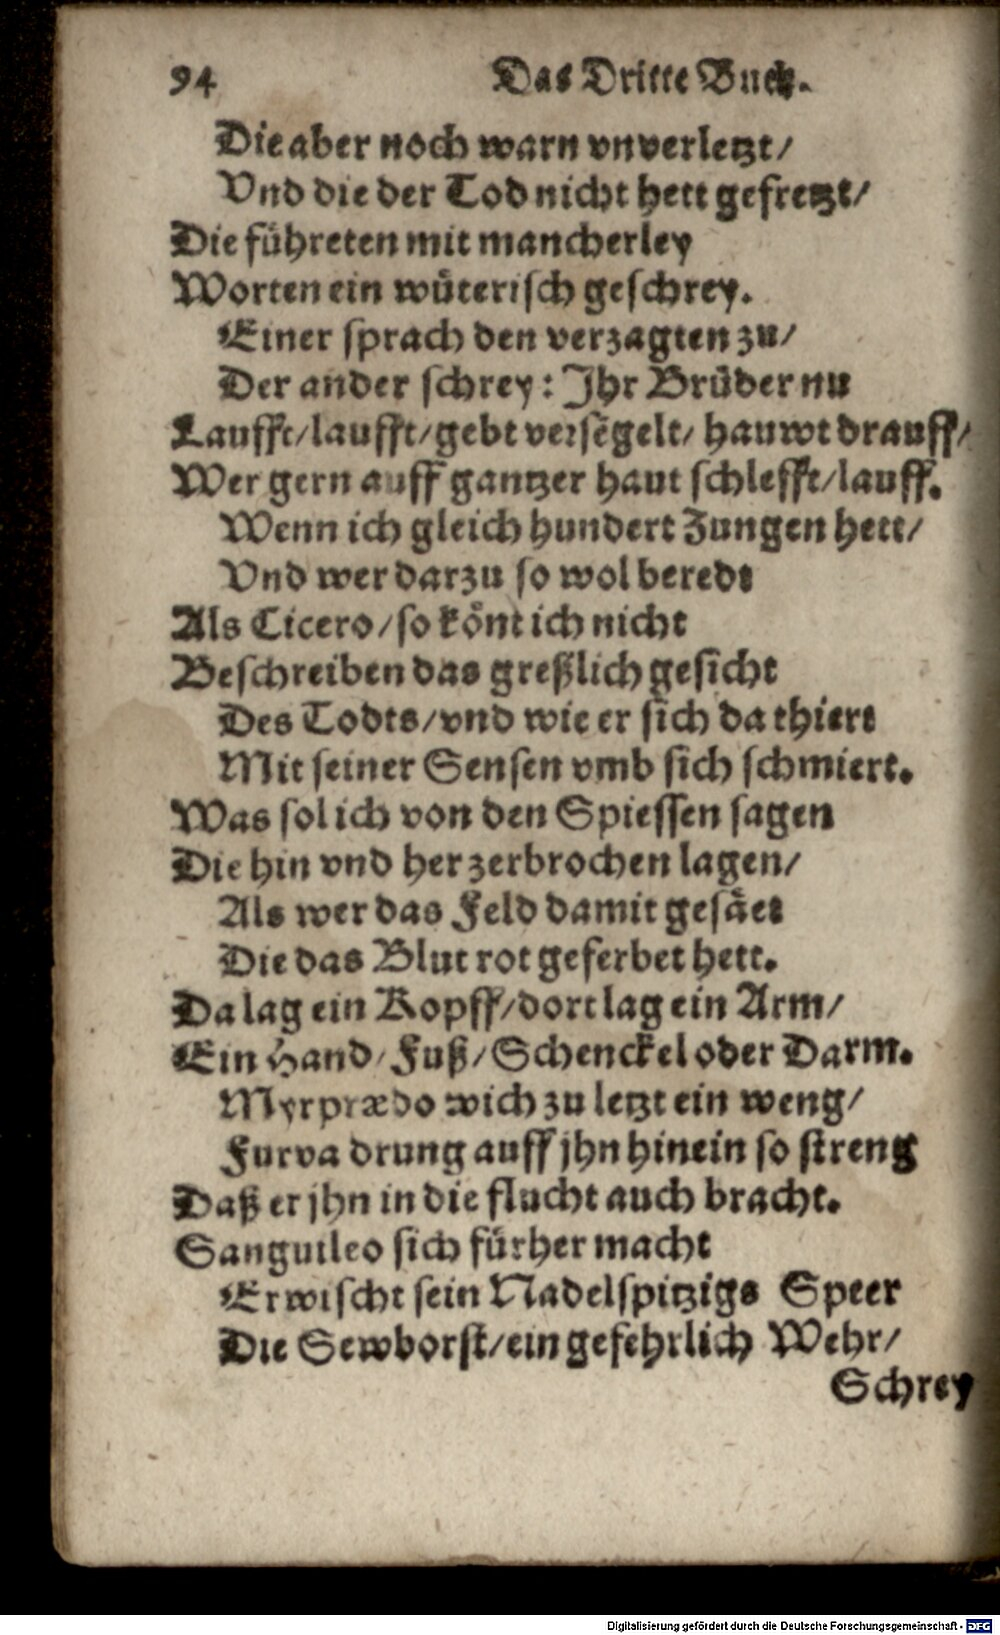 94 Das Dritte Buch.
Die aber noch warn vnverletzt/
Vnd die der Tod nicht hett gefretzt/
Die führeten mit mancherley
Worten ein wüterisch geschrey.
Einer sprach den verzagten zu/
Der ander schrey: Jhr Brüder nu
Laufft/laufft/gebt versegelt/ hauwt drauff/
Wer gern auff gantzer haut schlefft/lauff.
Wenn ich gleich hundert Zungen hett/
Vnd wer darzu so wol beredt
Als Cicero/so könt ich nicht
Beschreiben das greßlich gesicht
Des Todts/vnd wie er sich da thiert
Mit seiner Sensen vmb sich schmiert.
Was sol ich von den Spiessen sagen
Die hin vnd her zerbrochen lagen/
Als wer das Feld damit gesäet
Die das Blut rot geferbet hett.
Da lag ein Kopff/dort lag ein Arm/
Ein Hand/Fuß/Schenckel oder Darm.
Myrprædo wich zu letzt ein weng/
Furva drung auff jhn hinein so streng
Daß er jhn in die flucht auch bracht.
Sanguileo sich fürher macht
Erwischt sein Nadelspitzigs Speer
Die Sewborst/ein gefehrlich Wehr/
Schrey
Digitalisierung gefördert durch die Deutsche Forschungsgemeinschaft - DFG